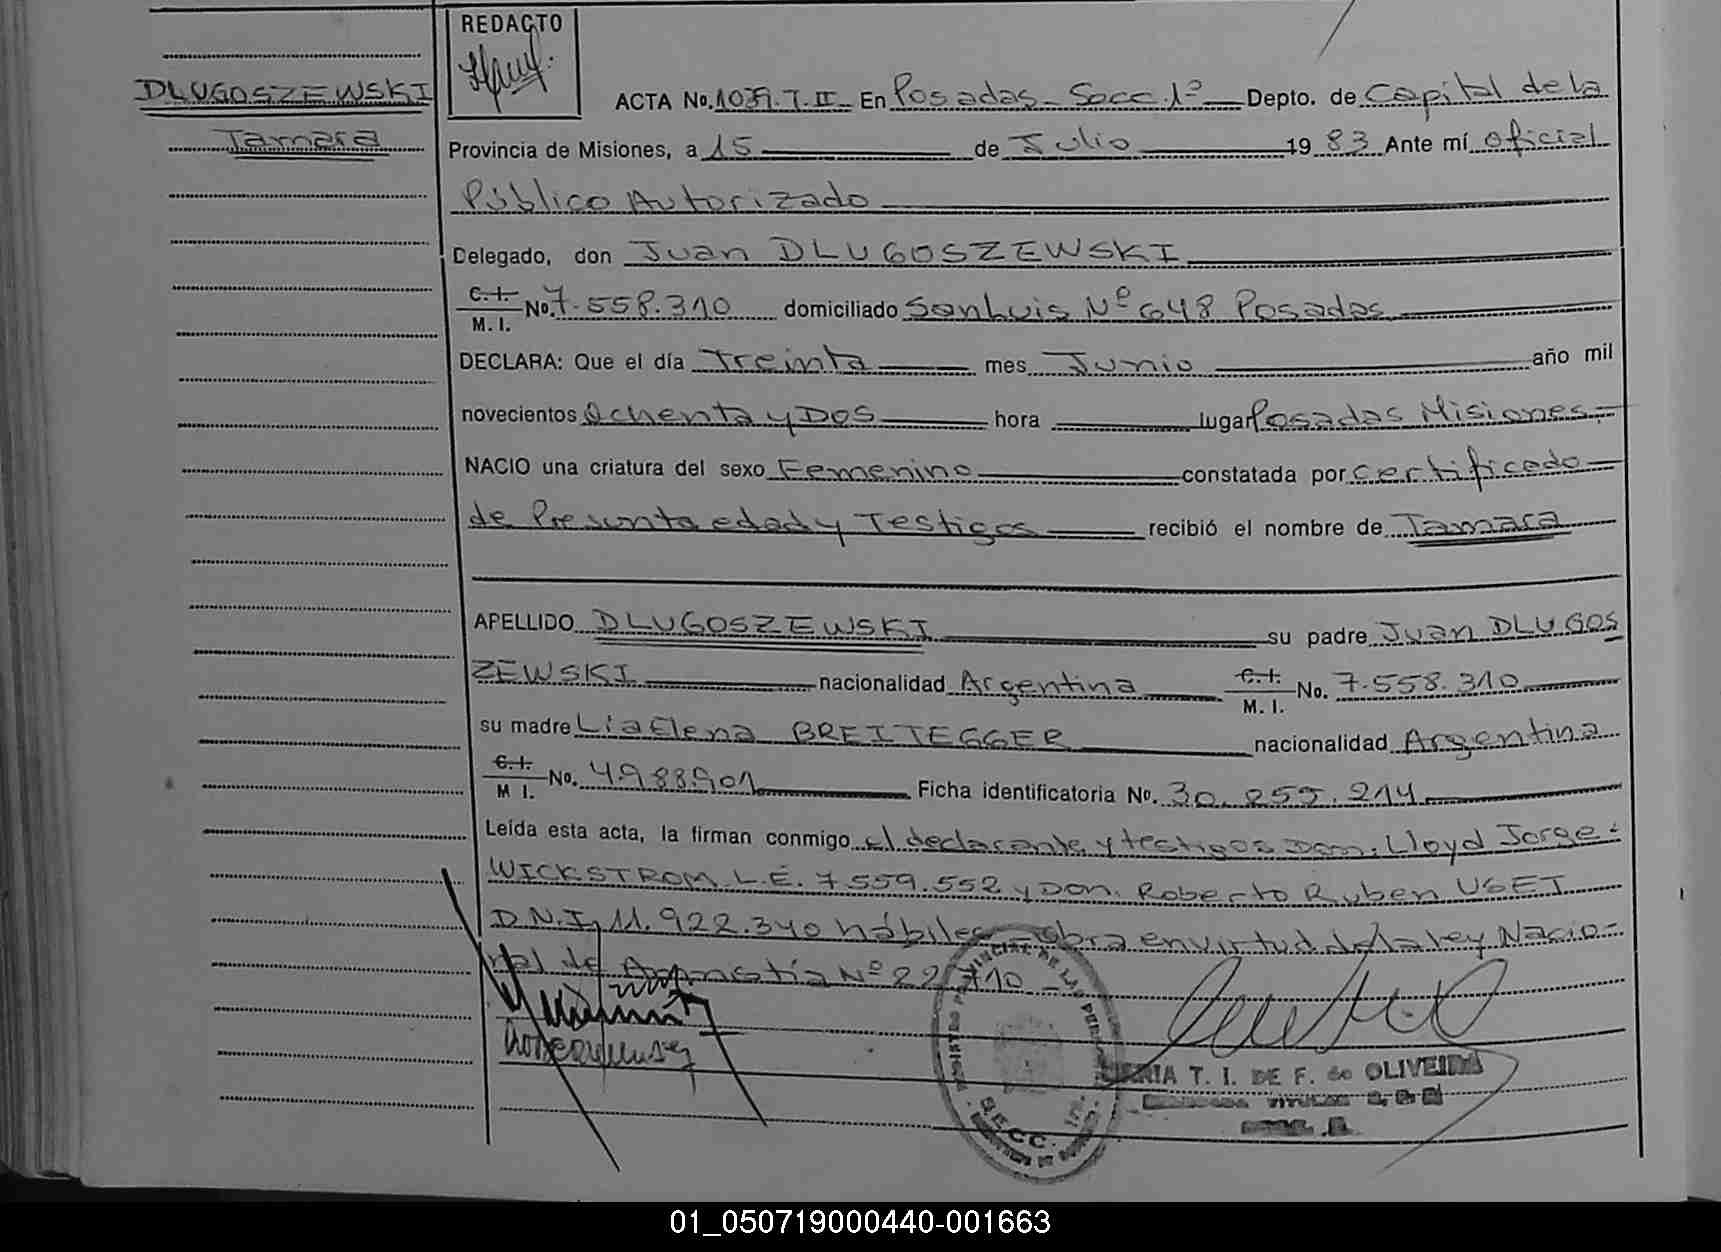 REDACTO
DLUGOSZEWSKI
Tamara
ACTA No. 1039. T. II En Posadas - Secc. 1º Depto. de Capital de la
Provincia de Misiones, a 15 de Julio 1983 Ante mí oficial
Público Autorizado
Delegado, don Juan DLUGOSZEWSKI
C. I. M. I. No. 7.558.310 domiciliado San Luis Nº 648 Posadas
DECLARA: Que el día Treinta mes Junio año mil
novecientos Ochenta y Dos hora lugar Posadas Misiones -
NACIO una criatura del sexo Femenino constatada por certificado
de Presunta edad y Testigos recibió el nombre de Tamara
APELLIDO DLUGOSZEWSKI su padre Juan DLUGOS
ZEWSKI nacionalidad Argentina C. I. M. I. No. 7.558.310
su madre Lia Elena BREITEGGER nacionalidad Argentina
C. I. M I. No. 4.988.901 Ficha identificatoria No. 30.255.214
Leída esta acta, la firman conmigo el declarante y testigos Don: Lloyd Jorge
WICKSTROM L.E. 7.559.552 y Don. Roberto Ruben USET
D.N.I. 11.922.340 hábiles - obra en virtud de la ley Nacio-
nal de Amnistía Nº 22.710 -
T. I. DE F. de OLIVEIRA
01_050719000440-001663